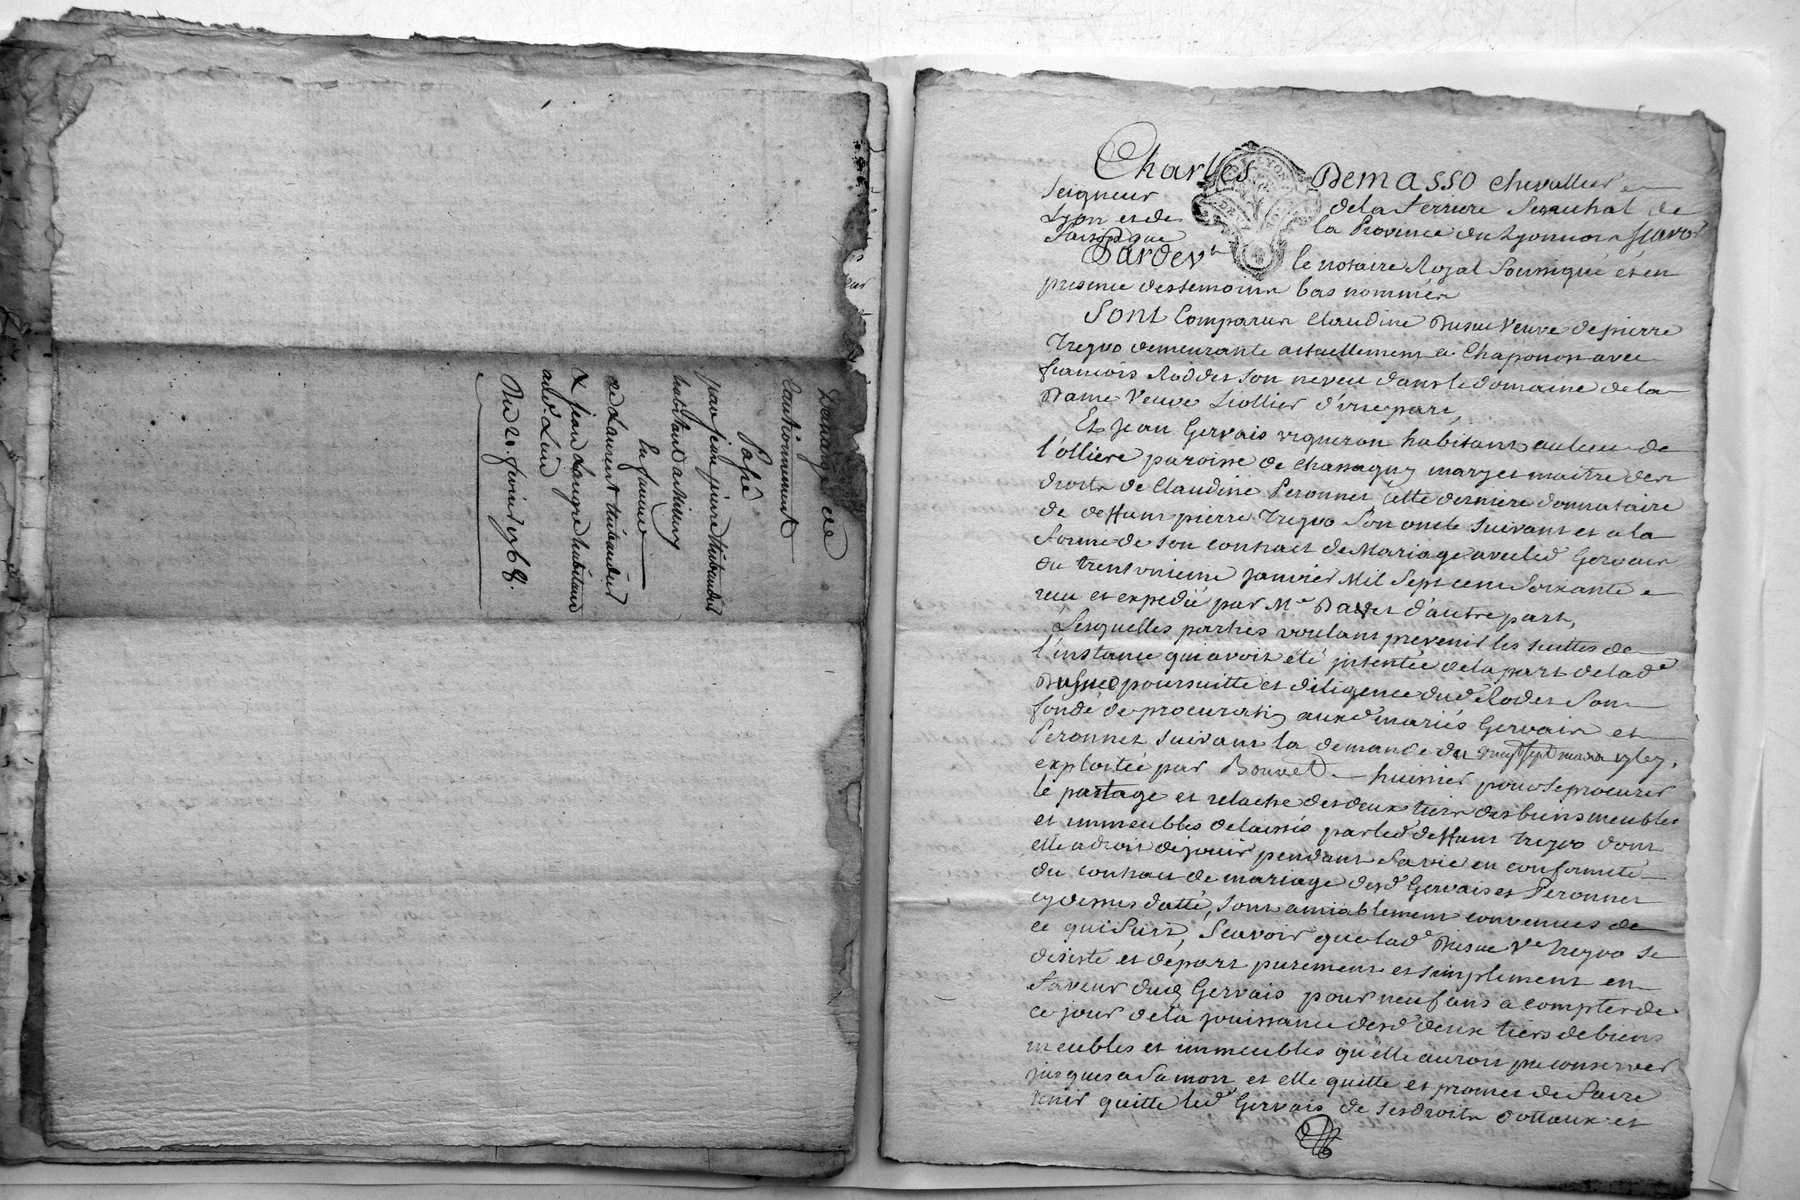 Decharge de
Cautionnement
Passé
par jean pierre thibaudier
habitant a
En faveur
de Laurent thibaudier
& jean Laugre habitant
aud. Lieu
Du 20. fevrier 1768.
Charles Demasso chevallier
Seigneur de la ferriere Senechal de
Lyon et de la Province du Lyonnois
Pardevt le notaire Royal Soussigné et en
presence des temoins bas nommés
Sont Comparus Claudine Veuve de pierre
Treyvo demeurante actuellement a Chaponon avec
francois Roddet son neveu dans le domaine de la
Dame Veuve Liollier d'une part,
Et Jean Gervais vigneron habitant au lieu de
l'olliere paroisse de Chassagny mary et maitre des
droits de Claudine Peronnet cette derniere donnataire
de deffunt pierre Treyvo Son oncle suivant et a la
forme de son contract de Mariage avec led Gervais
du trente unieme janvier Mil Sept cent Soixante
recu et expedié par Me d'autre part,
Lesquelles parties voulant prevenir les suittes de
l'instance qui avoit été intentée de la part de lad.e
poursuitte et diligence dud. Rodet Son
fondé de procuration aux d. mariés Gervais et
Peronnet suivant la demande du vingt sept mars 1767.
exploitée par Bouvet huissier pour se procurer
le partage et relache des deux tiers des biens meubles
et immeubles delaissés par led. deffunt Treyvo dont
elle a droit de jouir pendant sa vie en conformité
du contract de mariage desd. Gervais et Peronnet
cy dessus datté, sont amiablement convenues de
ce qui Suit, Scavoir que lad.e Ve Treyvo se
desiste et depart purement et simplement en
faveur dud Gervais pour neuf ans a compter de
ce jour de la jouissance desd. deux tiers de biens
meubles et immeubles qu'elle auroit pu conserver
jusques a sa mort, et elle quitte et promet de faire
tenir quitte led. Gervais de ses droits dottaux et